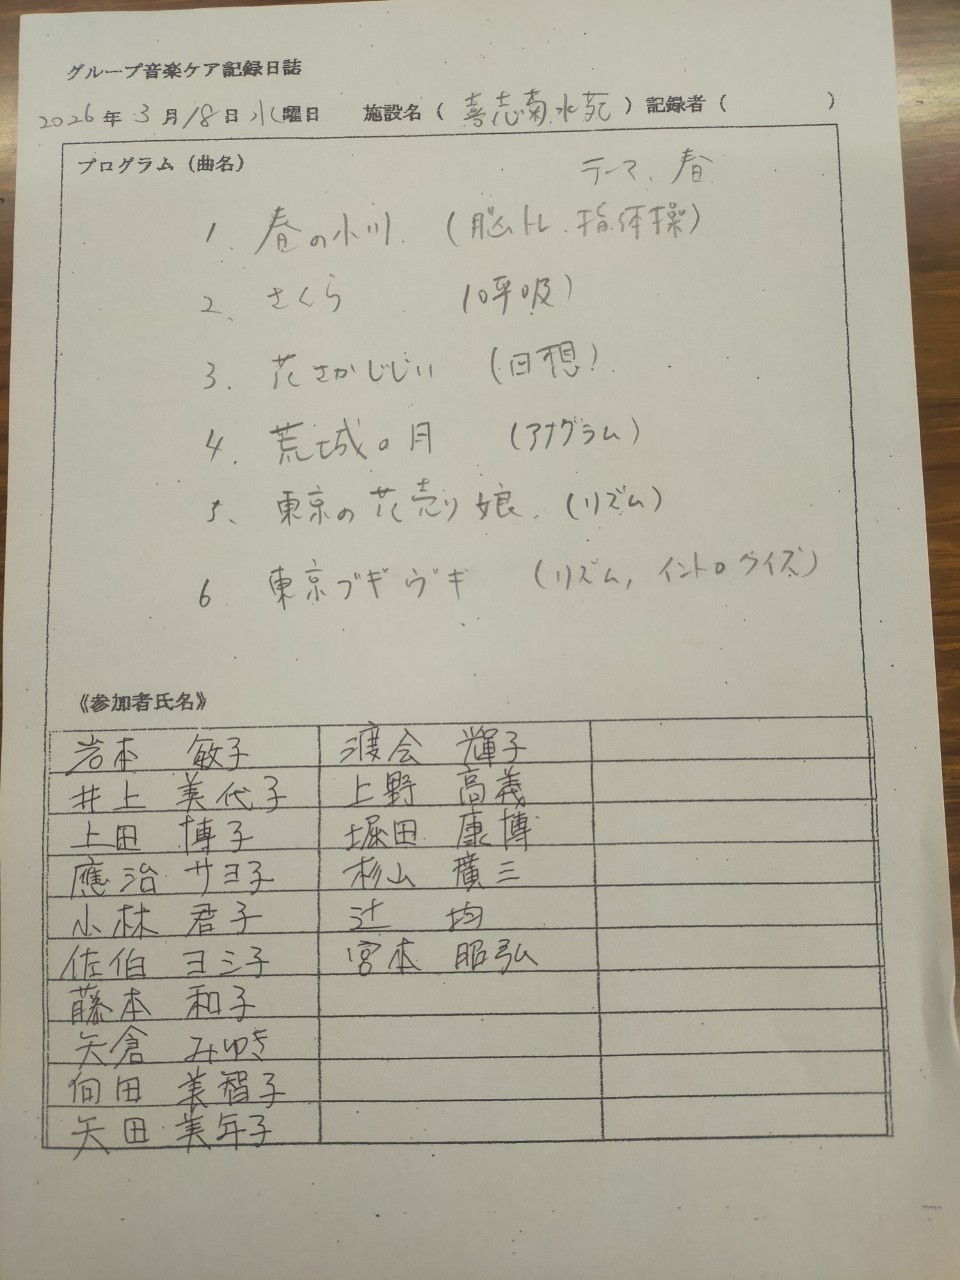 グループ音楽ケア記録日誌
2026年 3月 18日 水曜日 施設名（ 喜志菊水苑 ）記録者（ ）
プログラム（曲名）
テーマ、春
1、春の小川 （脳トレ、指体操）
2、さくら （呼吸）
3、花さかじじい （回想）
4、荒城の月 （アナグラム）
5、東京の花売り娘 （リズム）
6 東京ブギウギ （リズム, イントロクイズ）
《参加者氏名》
岩本 敏子 渡会 輝子
井上 美代子 上野 高義
上田 博子 堀田 康博
應治 サヨ子 杉山 廣三
小林 君子 辻 均
佐伯 ヨシ子 宮本 昭弘
藤本 和子
矢倉 みゆき
向田 美智子
矢田 美年子